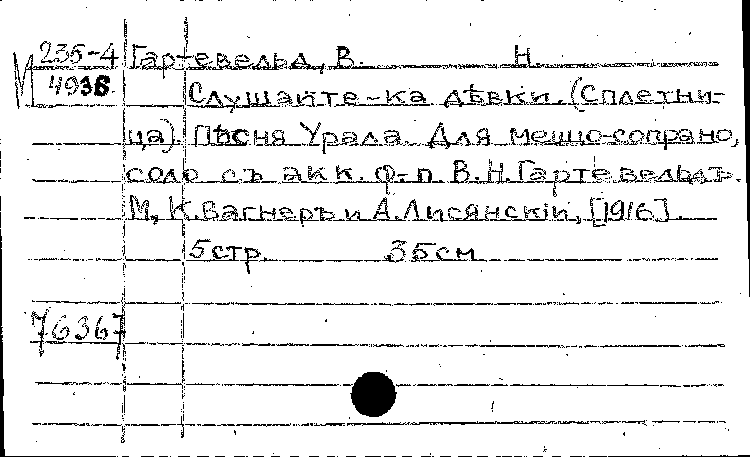 М 235-4 Гартевельд, В. Н.
4938
Слушайте-ка дѣвки. (Сплетни-
ца). Пѣсня Урала. Для меццо-сопрано,
соло съ акк. ф-п. В. Н. Гартевельдъ.
М, К. Вагнеръ и А. Лисянскій, [1916].
5 стр. 35 см
76367